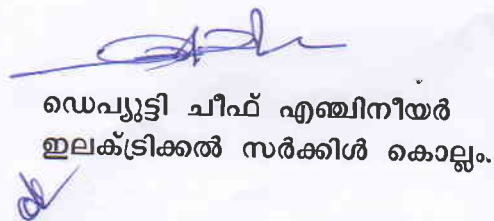 ഡെപ്യുട്ടി ചീഫ് എഞ്ചിനീയർ
ഇലക്ട്രിക്കൽ സർക്കിൾ കൊല്ലം.